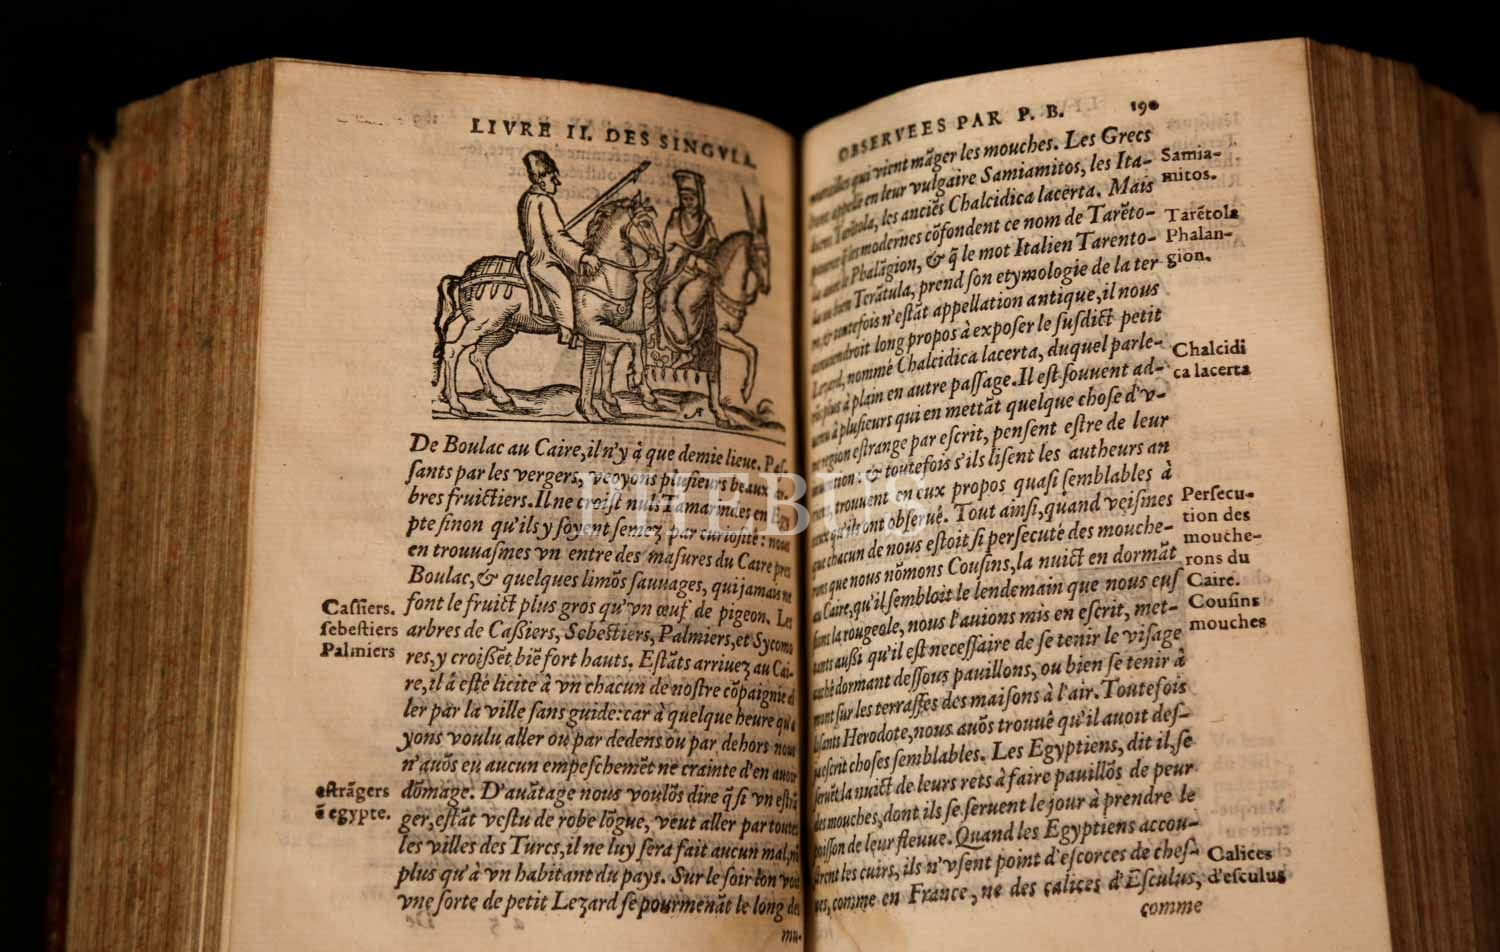 LIVRE II. DES SINGVLA.
De Boulac au Caire, il n'y à que demie lieue. Paſ-
ſants par les vergers, veoyons pluſieurs beaux ar-
bres fruictiers. Il ne croiſt nuls Tamarindes en Egy-
pte ſinon qu'ils y ſoyent ſemez par curioſité: nous
en trouuaſmes vn entre des maſures du Caire pres
Boulac, & quelques limõs ſauuages, qui jamais ne
font le fruict plus gros qu'vn œuf de pigeon. Les
arbres de Caßiers, Sebeſtiers, Palmiers, et Sycomo
res, y croiſſẽt biẽ fort hauts. Eſtãts arriuez au Cai-
re, il à eſté licite à vn chacun de noſtre cõpaignie d'al
ler par la ville ſans guide: car à quelque heure qu'a
yons voulu aller ou par dedens ou par dehors nous
n'auõs eu aucun empeſchemẽt ne crainte d'en auoir
dõmage. D'auãtage nous voulõs dire q̃ ſi vn eſtrã
ger, eſtãt veſtu de robe lõgue, veut aller par toutes
les villes des Turcs, il ne luy ſera fait aucun mal, nõ
plus qu'à vn habitant du pays. Sur le ſoir lon voit
vne ſorte de petit Lezard ſe pourmenãt le long des
mu-
Caſſiers.
ſebeſtiers
Palmiers
eſtrãgers
ẽ egypte.
PHEBUS
OBSERVEES PAR P. B. 190
murailles qui vient mãger les mouches. Les Grecs
appellé en leur vulgaire Samiamitos, les Ita-
Tarẽtola, les anciẽs Chalcidica lacerta. Mais
q̃ les modernes cõfondent ce nom de Tarẽto-
Phalãgion, & q̃ le mot Italien Tarento-
ou bien Terãtula, prend ſon etymologie de la ter
toutefois n'eſtãt appellation antique, il nous
conuiendroit long propos à expoſer le ſuſdict petit
Lezard, nommé Chalcidica lacerta, duquel parle-
plus à plain en autre paſſage. Il eſt ſouuent ad-
uenu à pluſieurs qui en mettãt quelque choſe d'v-
ne region eſtrange par eſcrit, penſent eſtre de leur
inuention: & toutefois s'ils liſent les autheurs an
trouuent en eux propos quaſi ſemblables à
ceux qu'ils ont obſerué. Tout ainſi, quand veiſmes
que chacun de nous eſtoit ſi perſecuté des mouche-
rons que nous nõmons Couſins, la nuict en dormãt
au Caire, qu'il ſembloit le lendemain que nous euſ
ſions la rougeole, nous l'auions mis en eſcrit, met-
tants außi qu'il eſt neceſſaire de ſe tenir le viſage
caché dormant deſſous pauillons, ou bien ſe tenir à
mont ſur les terraſſes des maiſons à l'air. Toutefois
liſants Herodote, nous auõs trouué qu'il auoit deſ-
ja eſcrit choſes ſemblables. Les Egyptiens, dit il, ſe
ſeruẽt la nuict de leurs rets à faire pauillõs de peur
des mouches, dont ils ſe ſeruent le jour à prendre le
poiſſon de leur fleuue. Quand les Egyptiens accou-
ſtrent les cuirs, ils n'vſent point d'eſcorces de cheſ-
nes, comme en France, ne des calices d'Eſculus,
comme
Samia-
mitos.
Tarẽtola
Phalan-
gion.
Chalcidi
ca lacerta
Perſecu-
tion des
mouche-
rons du
Caire.
Couſins
mouches
Calices
d'eſculus